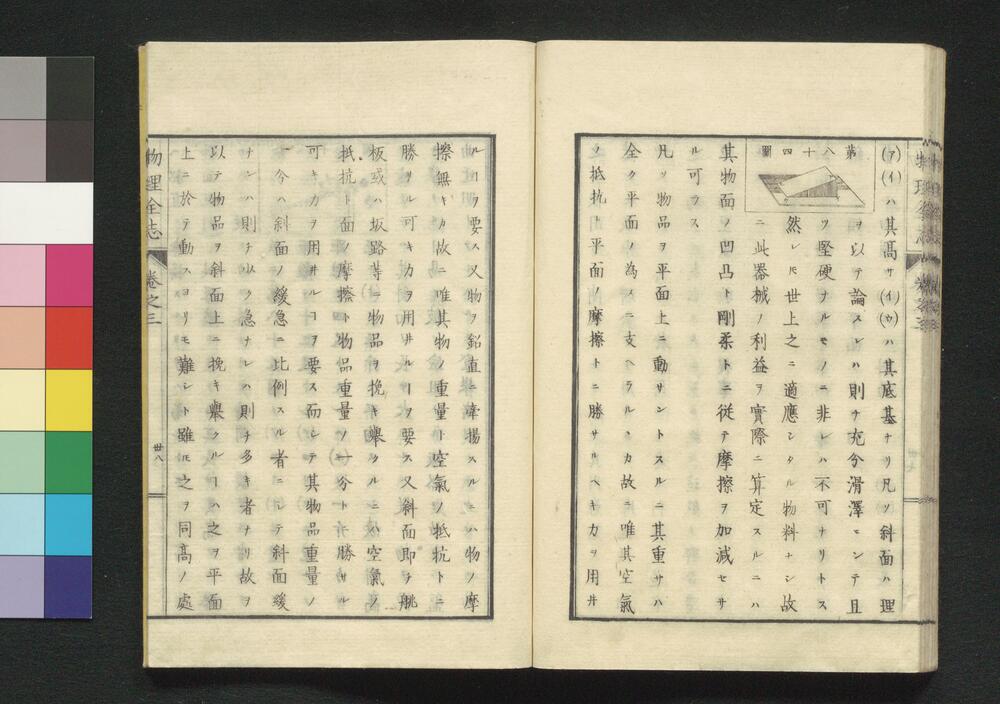 (ア)(イ)ハ其高サ(イ)(ウ)ハ其底基ナリ凡ソ斜面ハ理
ヲ以テ論スレハ則チ充分滑澤ニシテ且
ツ堅硬ナルモノニ非レハ不可ナリトス
然レ𪜈世上之ニ適應シタル物料ナシ故
ニ此器械ノ利益ヲ實際ニ算定スルニハ
第八十四圖
其物面ノ凹凸ト剛柔トニ從テ摩擦ヲ加減セサ
ル可ラス
凡ソ物品ヲ平面上ニ動サントスルニ其重サハ
全ク平面ノ為メニ支ヘラルヽカ故ニ唯其空氣
ノ抵抗ト平面ノ摩擦トニ勝サルヘキカヲ用井
ルヿヲ要ス又物ヲ鉛直ニ牽揚スルニハ物ノ摩
擦無キカ故ニ唯其物ノ重量ト空氣ノ抵抗トニ
勝サル可キカヲ用井ルヿヲ要ス又斜面即チ眺
板或ハ坂路等ニ物品ヲ挽キ擧クルニハ空氣ノ
抵抗ト面ノ摩擦ト物品重量ノ一分ト勝サル
可キカヲ用井ルヿヲ要ス而シテ其物品重量ノ
一分ハ斜面ノ緩急ニ比例スル者ニシテ斜面緩
ナレハ則チ少ク急ナレハ則チ多キ者ナリ故ヲ
以テ物品ヲ斜面上ニ挽キ擧クルヿハ之ヲ平面
上ニ於テ動スヨリモ難シト雖𪜈之ヲ同高ノ處
物理全志 卷之三 卅八